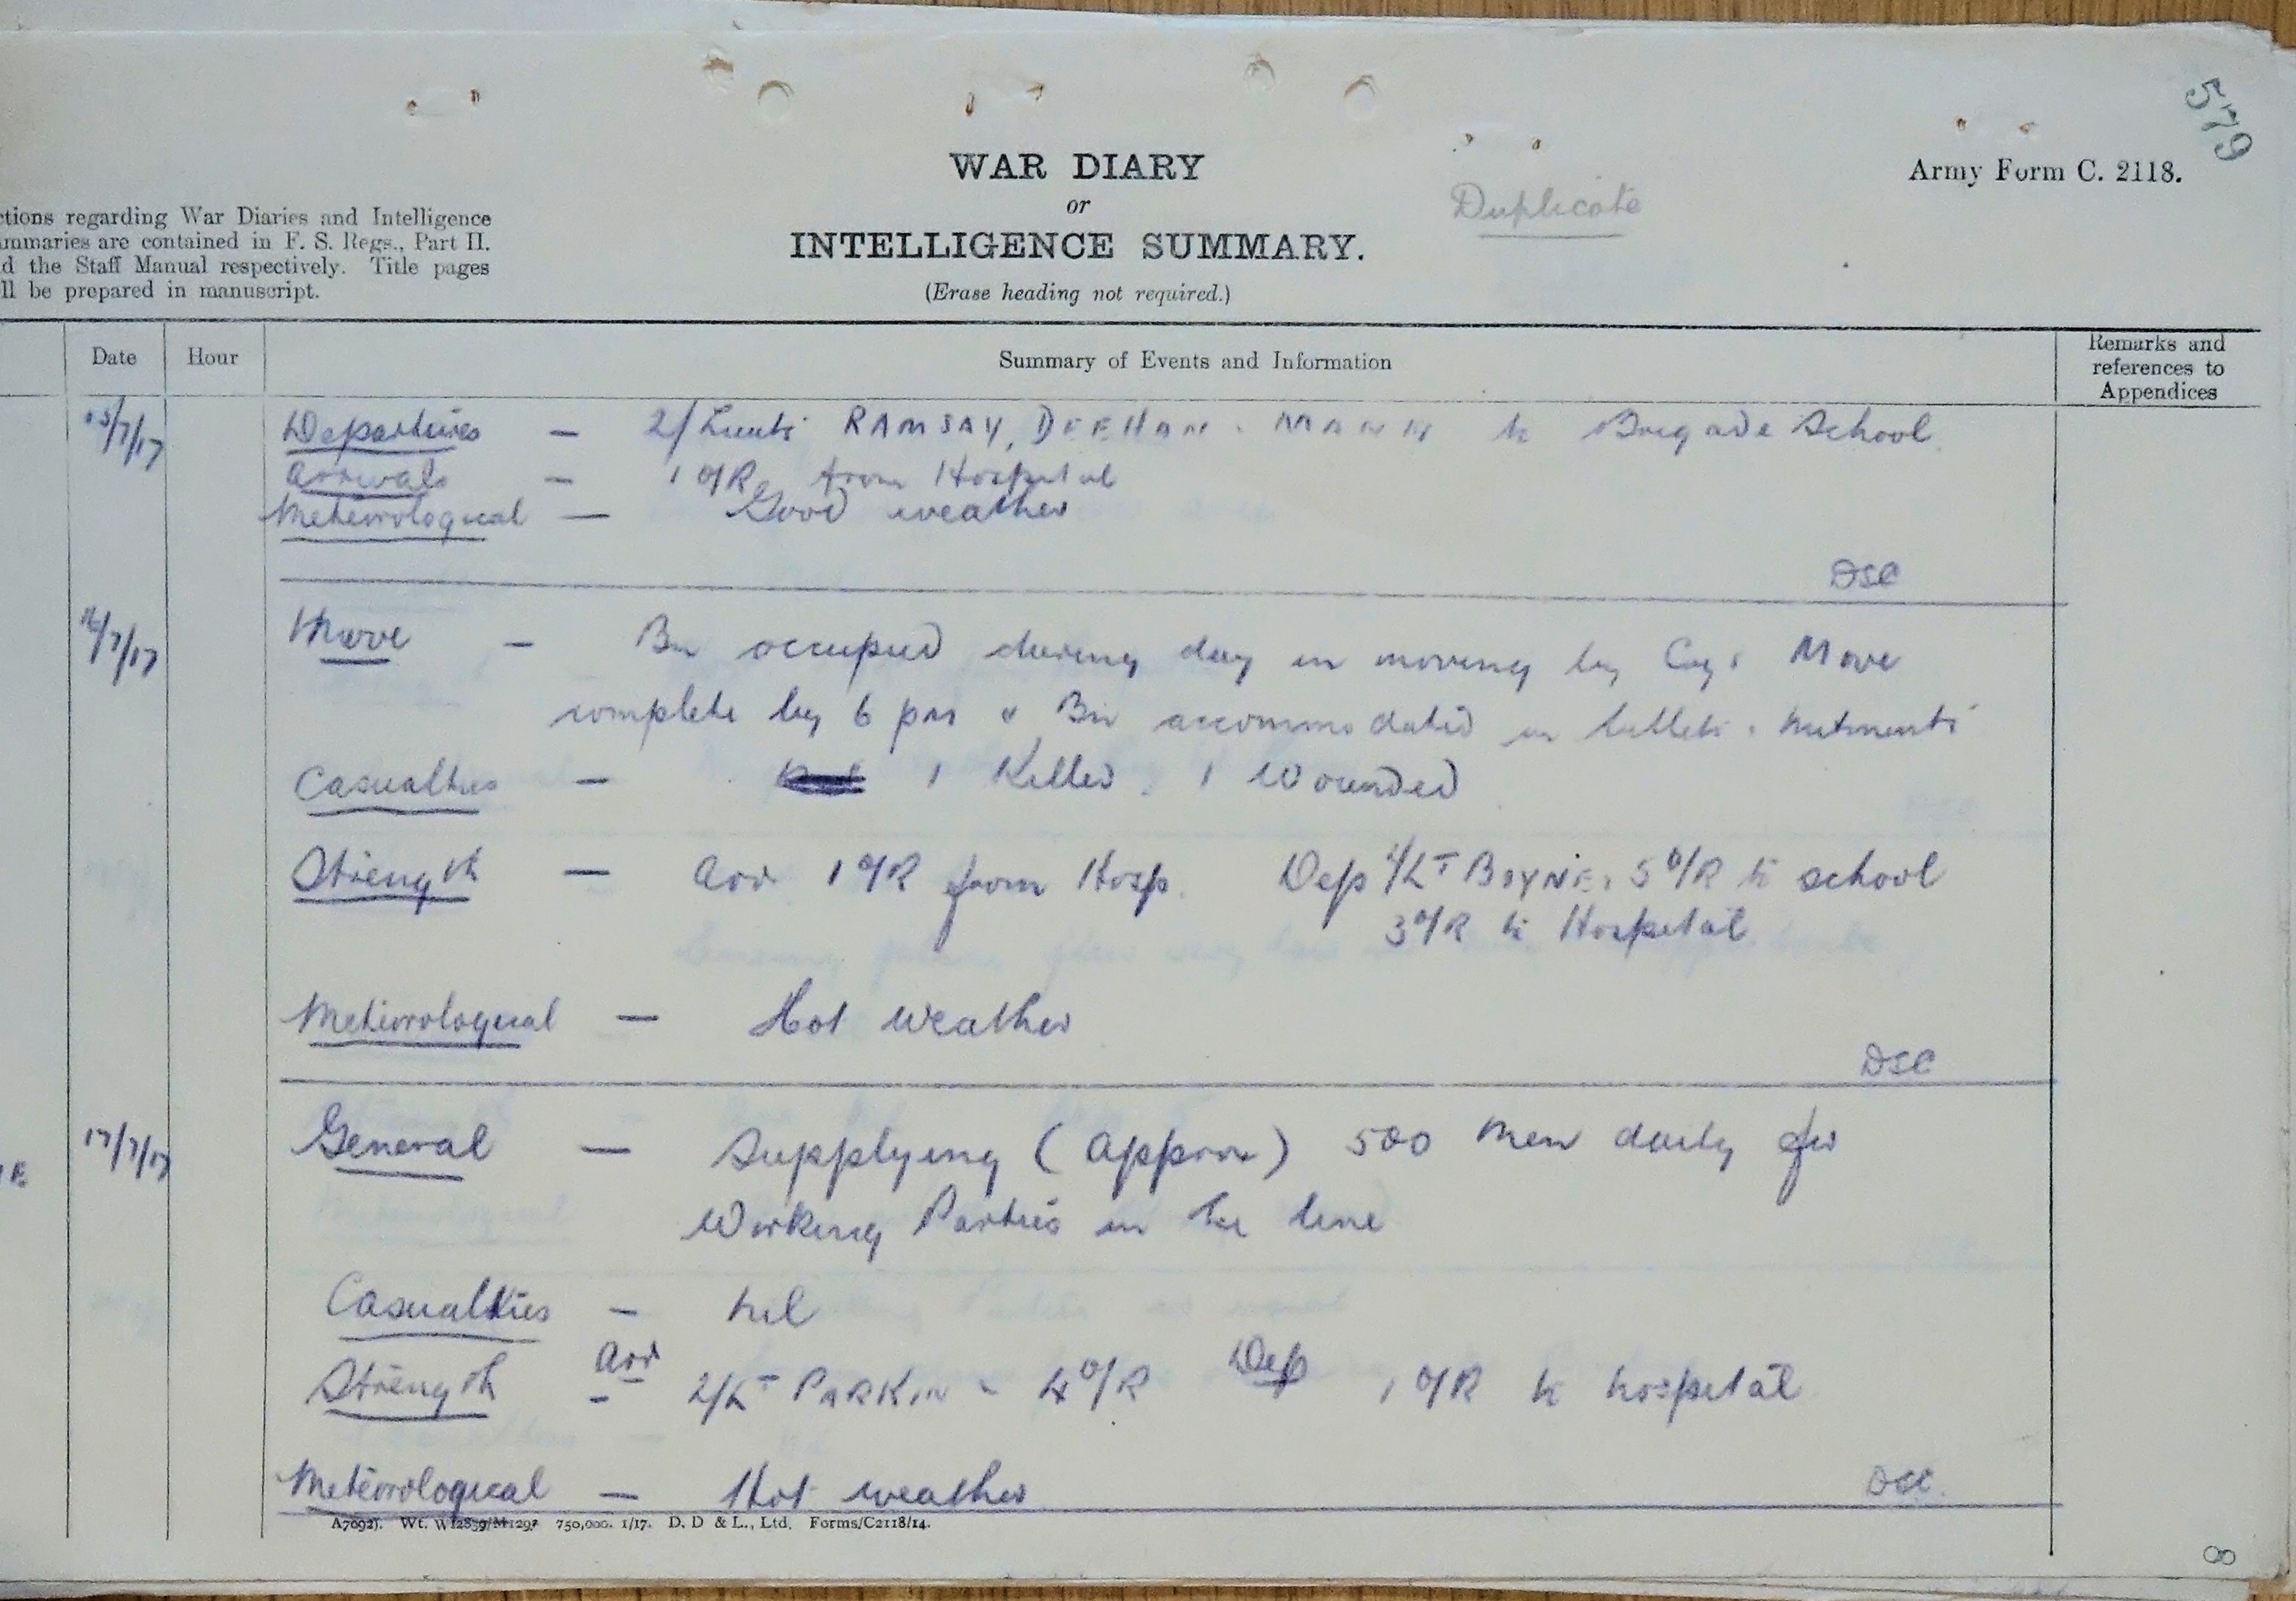 579
WAR DIARY
or
INTELLIGENCE SUMMARY.
(Erase heading not required.)
Duplicate
Army Form C. 2118.
ctions regarding War Diaries and Intelligence
ummaries are contained in F. S. Regs., Part II.
d the Staff Manual respectively. Title pages
ll be prepared in manuscript.
Date Hour Summary of Events and Information Remarks and references to Appendices
15/7/17 Departures — 2/Lieuts RAMSAY, DEEHAN & MANN to Brigade School
Arrivals — 1 O/R from Hospital
Meteorological — Good weather
DSC
16/7/17 Move — Bn occupied during day in moving by Coys Move
complete by 6 pm & Bn accommodated in billets & hutments
Casualties — 1 Killed, 1 Wounded
Strength — Arr 1 O/R from Hosp. Dep 2/LT BOYNE, 5 O/R to school
3 O/R to Hospital
Meteorological — Hot weather
DSC
17/7/17 General — Supplying (approx) 500 men daily for
Working Parties in the line
Casualties — Nil
Strength — Arr 2/LT PARKIN & 4 O/R Dep 1 O/R to hospital
Meteorological — Hot weather
DSC.
750,000. 1/17. D. D & L., Ltd. Forms/C2118/14.
8